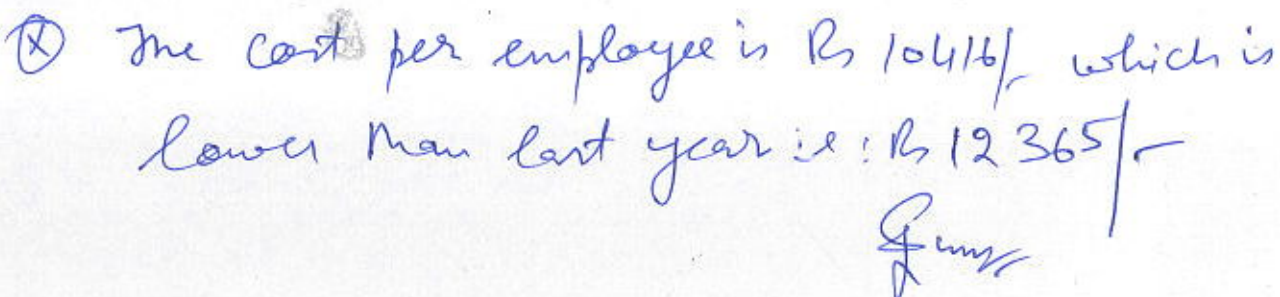 ⓧ The cost per employee is Rs 10416/- which is
lower than last year i.e : Rs 12365/-